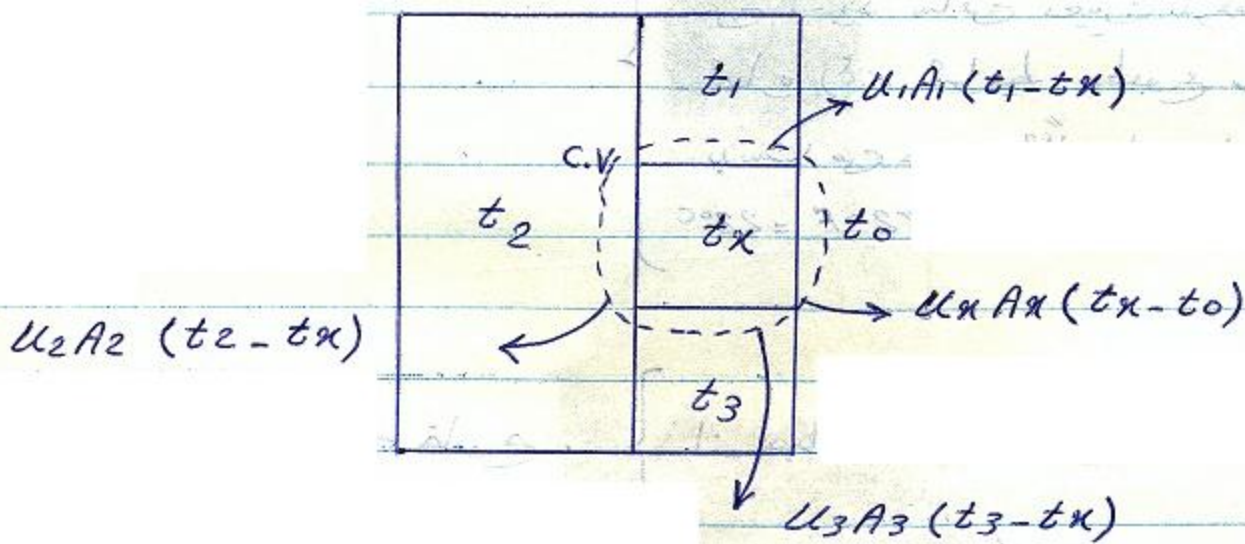 t1
U1A1(t1-tx)
C.V
t2
tx
to
UxAx(tx-to)
U2A2 (t2-tx)
t3
U3A3(t3-tx)